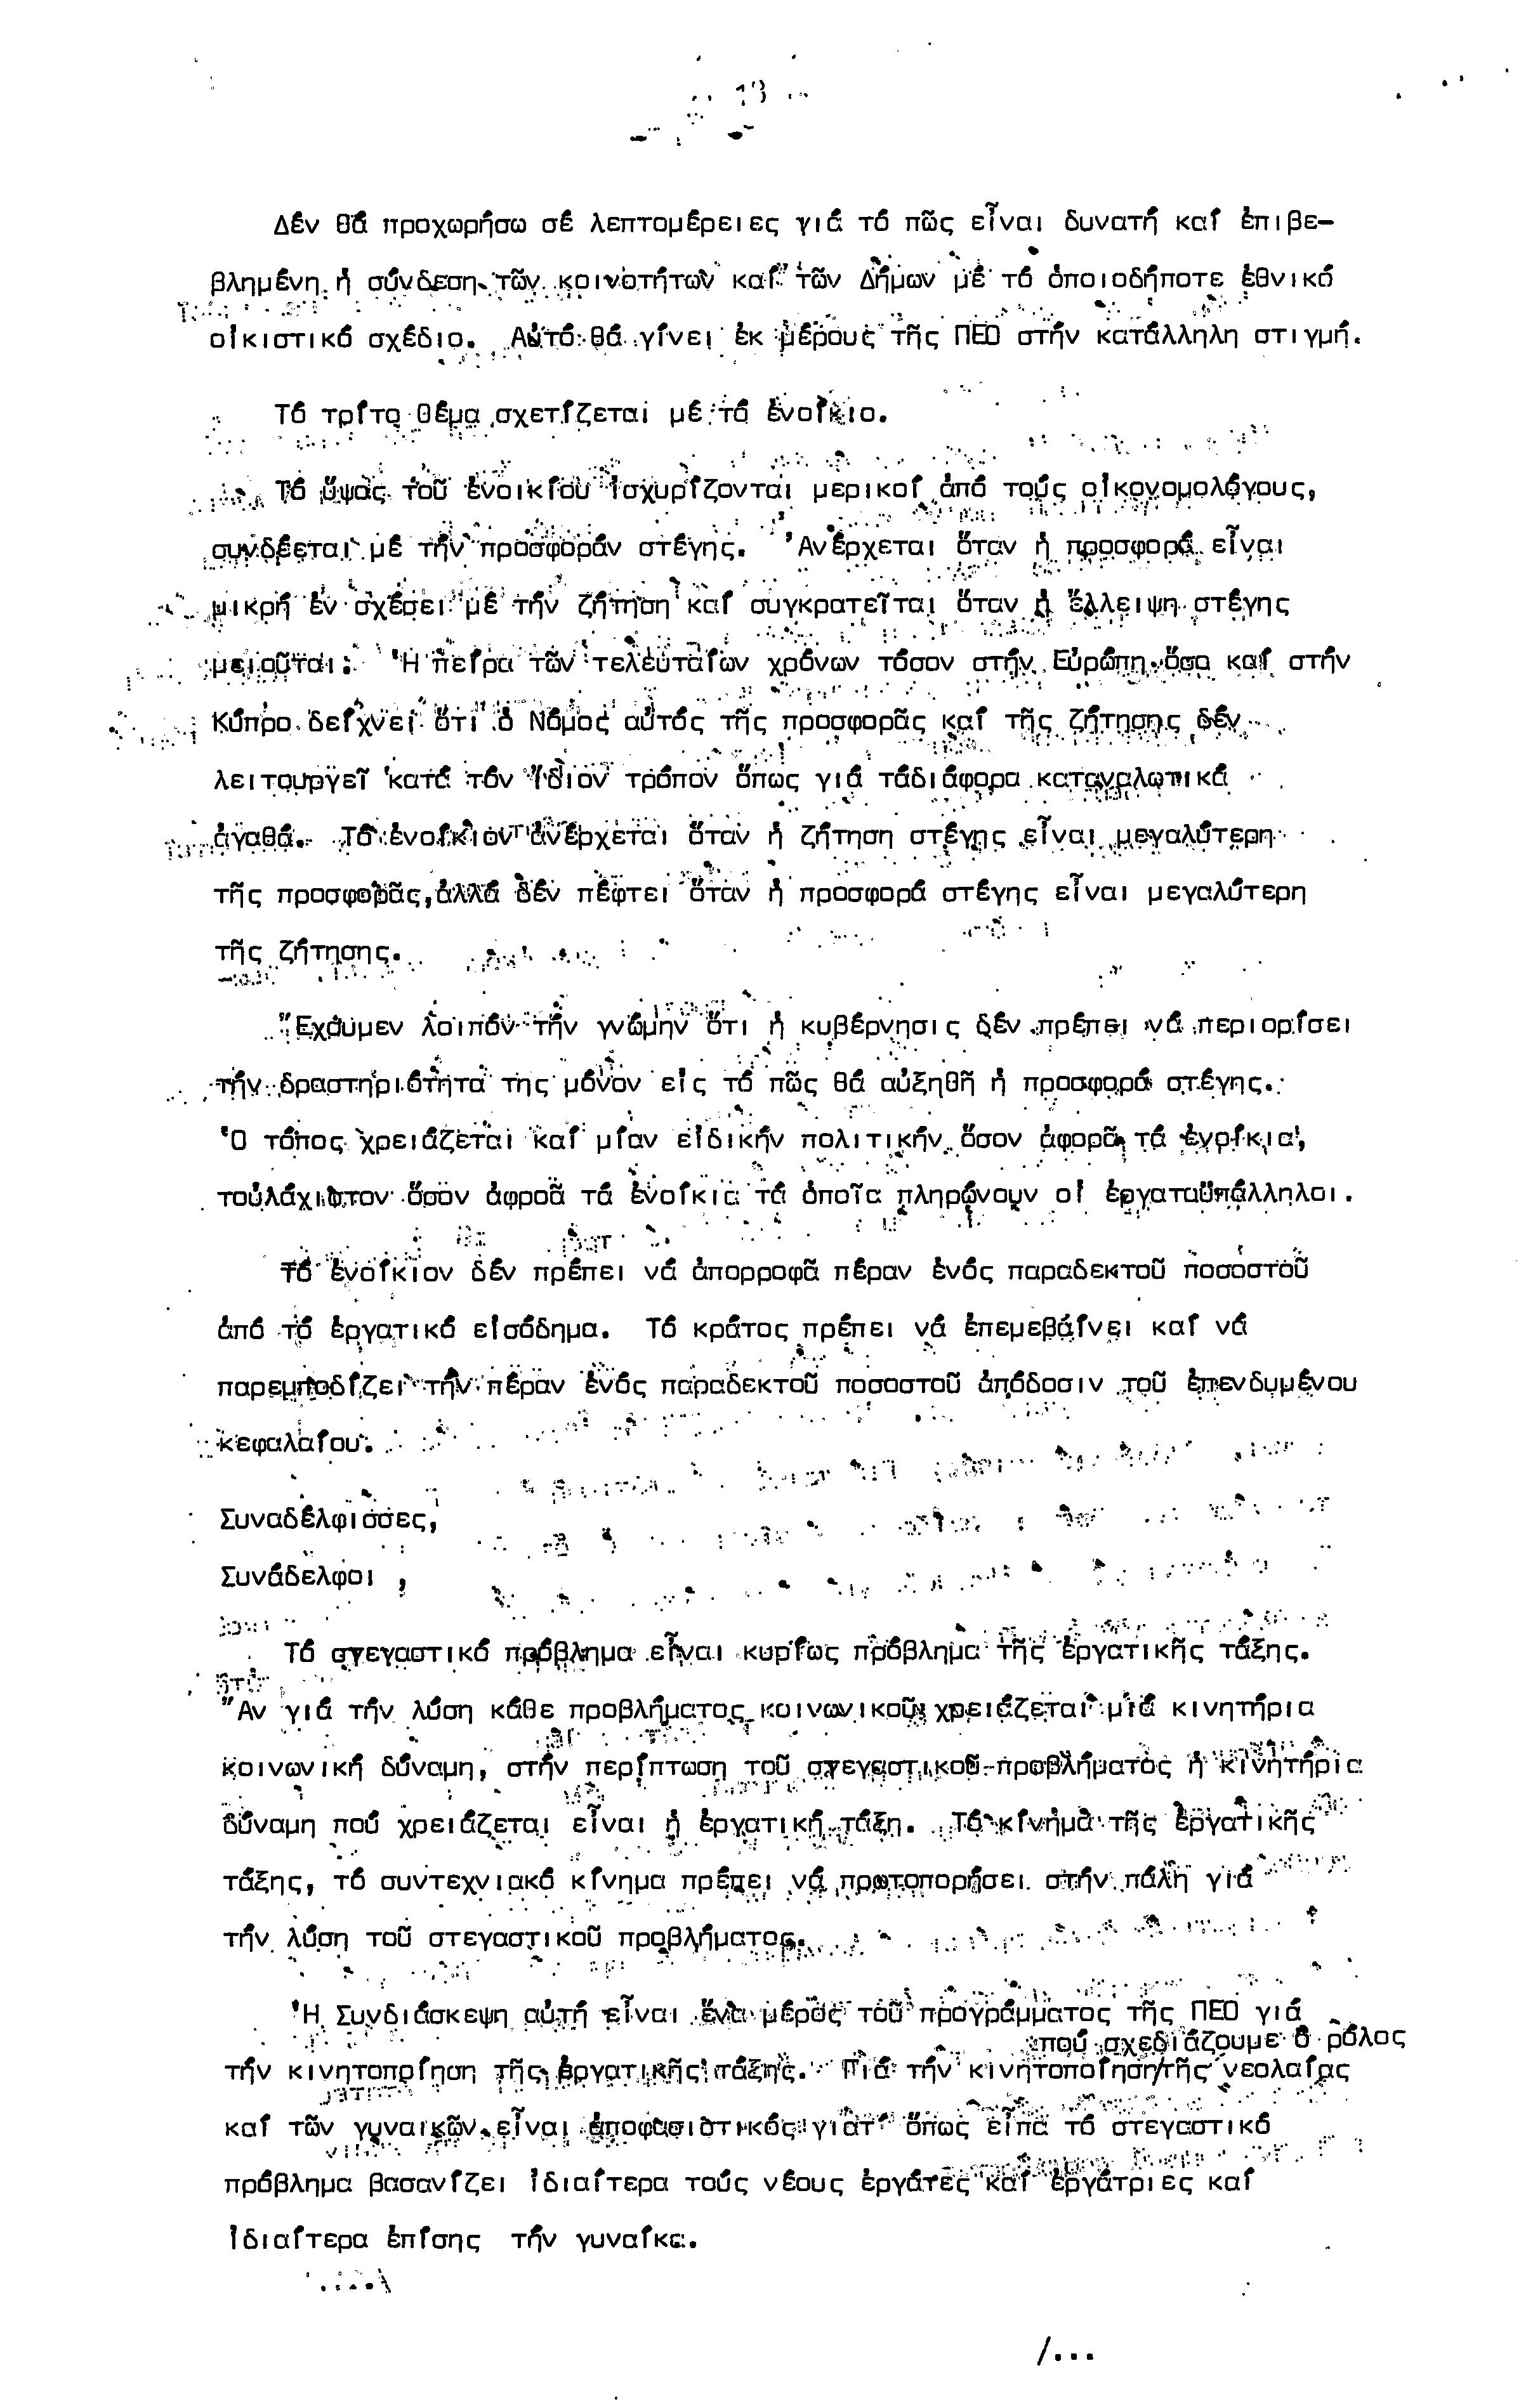 13
Δέν θά προχωρήσω σέ λεπτομέρειες γιά τό πῶς εἶναι δυνατή καί ἐπιβε-
βλημένη ἡ σύνδεση τῶν κοινοτήτων καί τῶν Δήμων μέ τό ὁποιοδήποτε ἐθνικό
οἰκιστικό σχέδιο. Αὐτό θά γίνει ἐκ μέρους τῆς ΠΕΟ στήν κατάλληλη στιγμή.
Τό τρίτο θέμα σχετίζεται μέ τό ἐνοίκιο.
Τό ὕψος τοῦ ἐνοικίου ἰσχυρίζονται μερικοί ἀπό τούς οἰκονομολόγους,
συνδέεται μέ τήν προσφοράν στέγης. Ἀνέρχεται ὅταν ἡ προσφορά εἶναι
μικρή ἐν σχέσει μέ τήν ζήτηση καί συγκρατεῖται ὅταν ἡ ἔλλειψη στέγης
μειοῦται. Ἡ πεῖρα τῶν τελευταίων χρόνων τόσον στήν Εὐρώπη ὅσο καί στήν
Κύπρο δείχνει ὅτι ὁ Νόμος αὐτός τῆς προσφορᾶς καί τῆς ζήτησης δέν
λειτουργεῖ κατά τόν ἴδιον τρόπον ὅπως γιά τάδιάφορα καταναλωτικά
ἀγαθά. Τό ἐνοίκιον ἀνέρχεται ὅταν ἡ ζήτηση στέγης εἶναι μεγαλύτερη
τῆς προσφορᾶς, ἀλλά δέν πέφτει ὅταν ἡ προσφορά στέγης εἶναι μεγαλύτερη
τῆς ζήτησης.
Ἔχουμεν λοιπόν τήν γνώμην ὅτι ἡ κυβέρνησις δέν πρέπει νά περιορίσει
τήν δραστηριότητα της μόνον εἰς τό πῶς θά αὐξηθῆ ἡ προσφορά στέγης.
Ὁ τόπος χρειάζεται καί μίαν εἰδικήν πολιτικήν ὅσον ἀφορᾶ τά ἐνοίκια,
τοὐλάχιστον ὅσον ἀφροᾶ τά ἐνοίκια τά ὁποῖα πληρώνουν οἱ ἐργαταϋπάλληλοι.
Τό ἐνοίκιον δέν πρέπει νά ἀπορροφᾶ πέραν ἑνός παραδεκτοῦ ποσοστοῦ
ἀπό τό ἐργατικό εἰσόδημα. Τό κράτος πρέπει νά ἐπεμεβάίνει καί νά
παρεμποδίζει τήν πέραν ἑνός παραδεκτοῦ ποσοστοῦ ἀπόδοσιν τοῦ ἐπενδυμένου
κεφαλαίου.
Συναδέλφισσες,
Συνάδελφοι ,
Τό στεγαστικό πρόβλημα εἶναι κυρίως πρόβλημα τῆς ἐργατικῆς τάξης.
Ἄν γιά τήν λύση κάθε προβλήματος κοινωνικοῦ χρειάζεται μιά κινητήρια
κοινωνική δύναμη, στήν περίπτωση τοῦ στεγαστικοῦ προβλήματος ἡ κινητήρια
δύναμη πού χρειάζεται εἶναι ἡ ἐργατική τάξη. Τό κίνημα τῆς ἐργατικῆς
τάξης, τό συντεχνιακό κίνημα πρέπει νά πρωτοπορήσει στήν πάλη γιά
τήν λύση τοῦ στεγαστικοῦ προβλήματος.
Ἡ Συνδιάσκεψη αὐτή εἶναι ἕνα μέρος τοῦ προγράμματος τῆς ΠΕΟ γιά
πού σχεδιάζουμε ὁ ρόλος
τήν κινητοποίηση τῆς ἐργατικῆς τάξης. Γιά τήν κινητοποίηση/τῆς νεολαίας
καί τῶν γυναικῶν εἶναι ἀποφασιστικός γιατί ὅπως εἶπα τό στεγαστικό
πρόβλημα βασανίζει ἰδιαίτερα τούς νέους ἐργάτες καί ἐργάτριες καί
ἰδιαίτερα ἐπίσης τήν γυναίκα.
/...